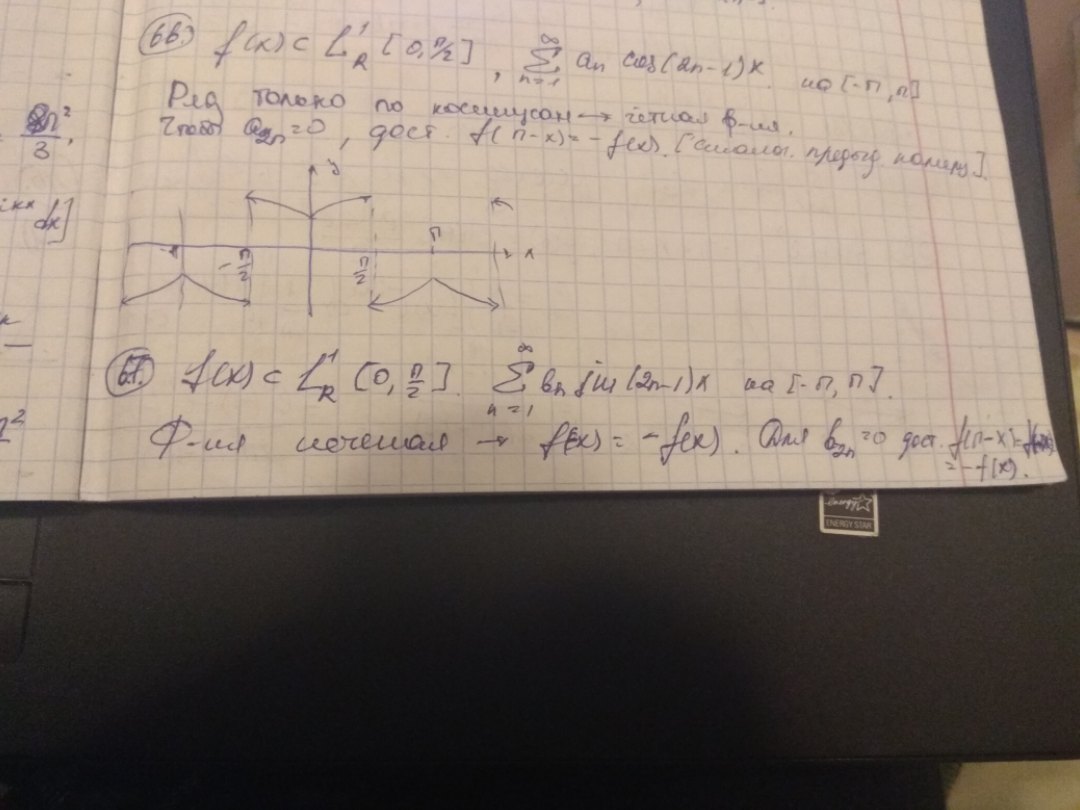 66. f(x) ⊂ L¹_R [0, π/2], ∑_{n=1}^∞ aₙ cos(2n-1)x на [-π, π]
Ряд только по косинусам → чётная ф-ия.
Чтобы a₂ₙ=0, дост. f(π-x) = -f(x). [аналог. предыд. номеру].
2π²
3
dx]
y
π
x
-π/2
π/2
67. f(x) ⊂ L¹_R [0, π/2]. ∑_{n=1}^∞ bₙ sin(2n-1)x на [-π, π].
Ф-ия нечетная → f(-x) = -f(x). Для b₂ₙ=0 дост. f(π-x)=
= -f(x).
energy
ENERGY STAR